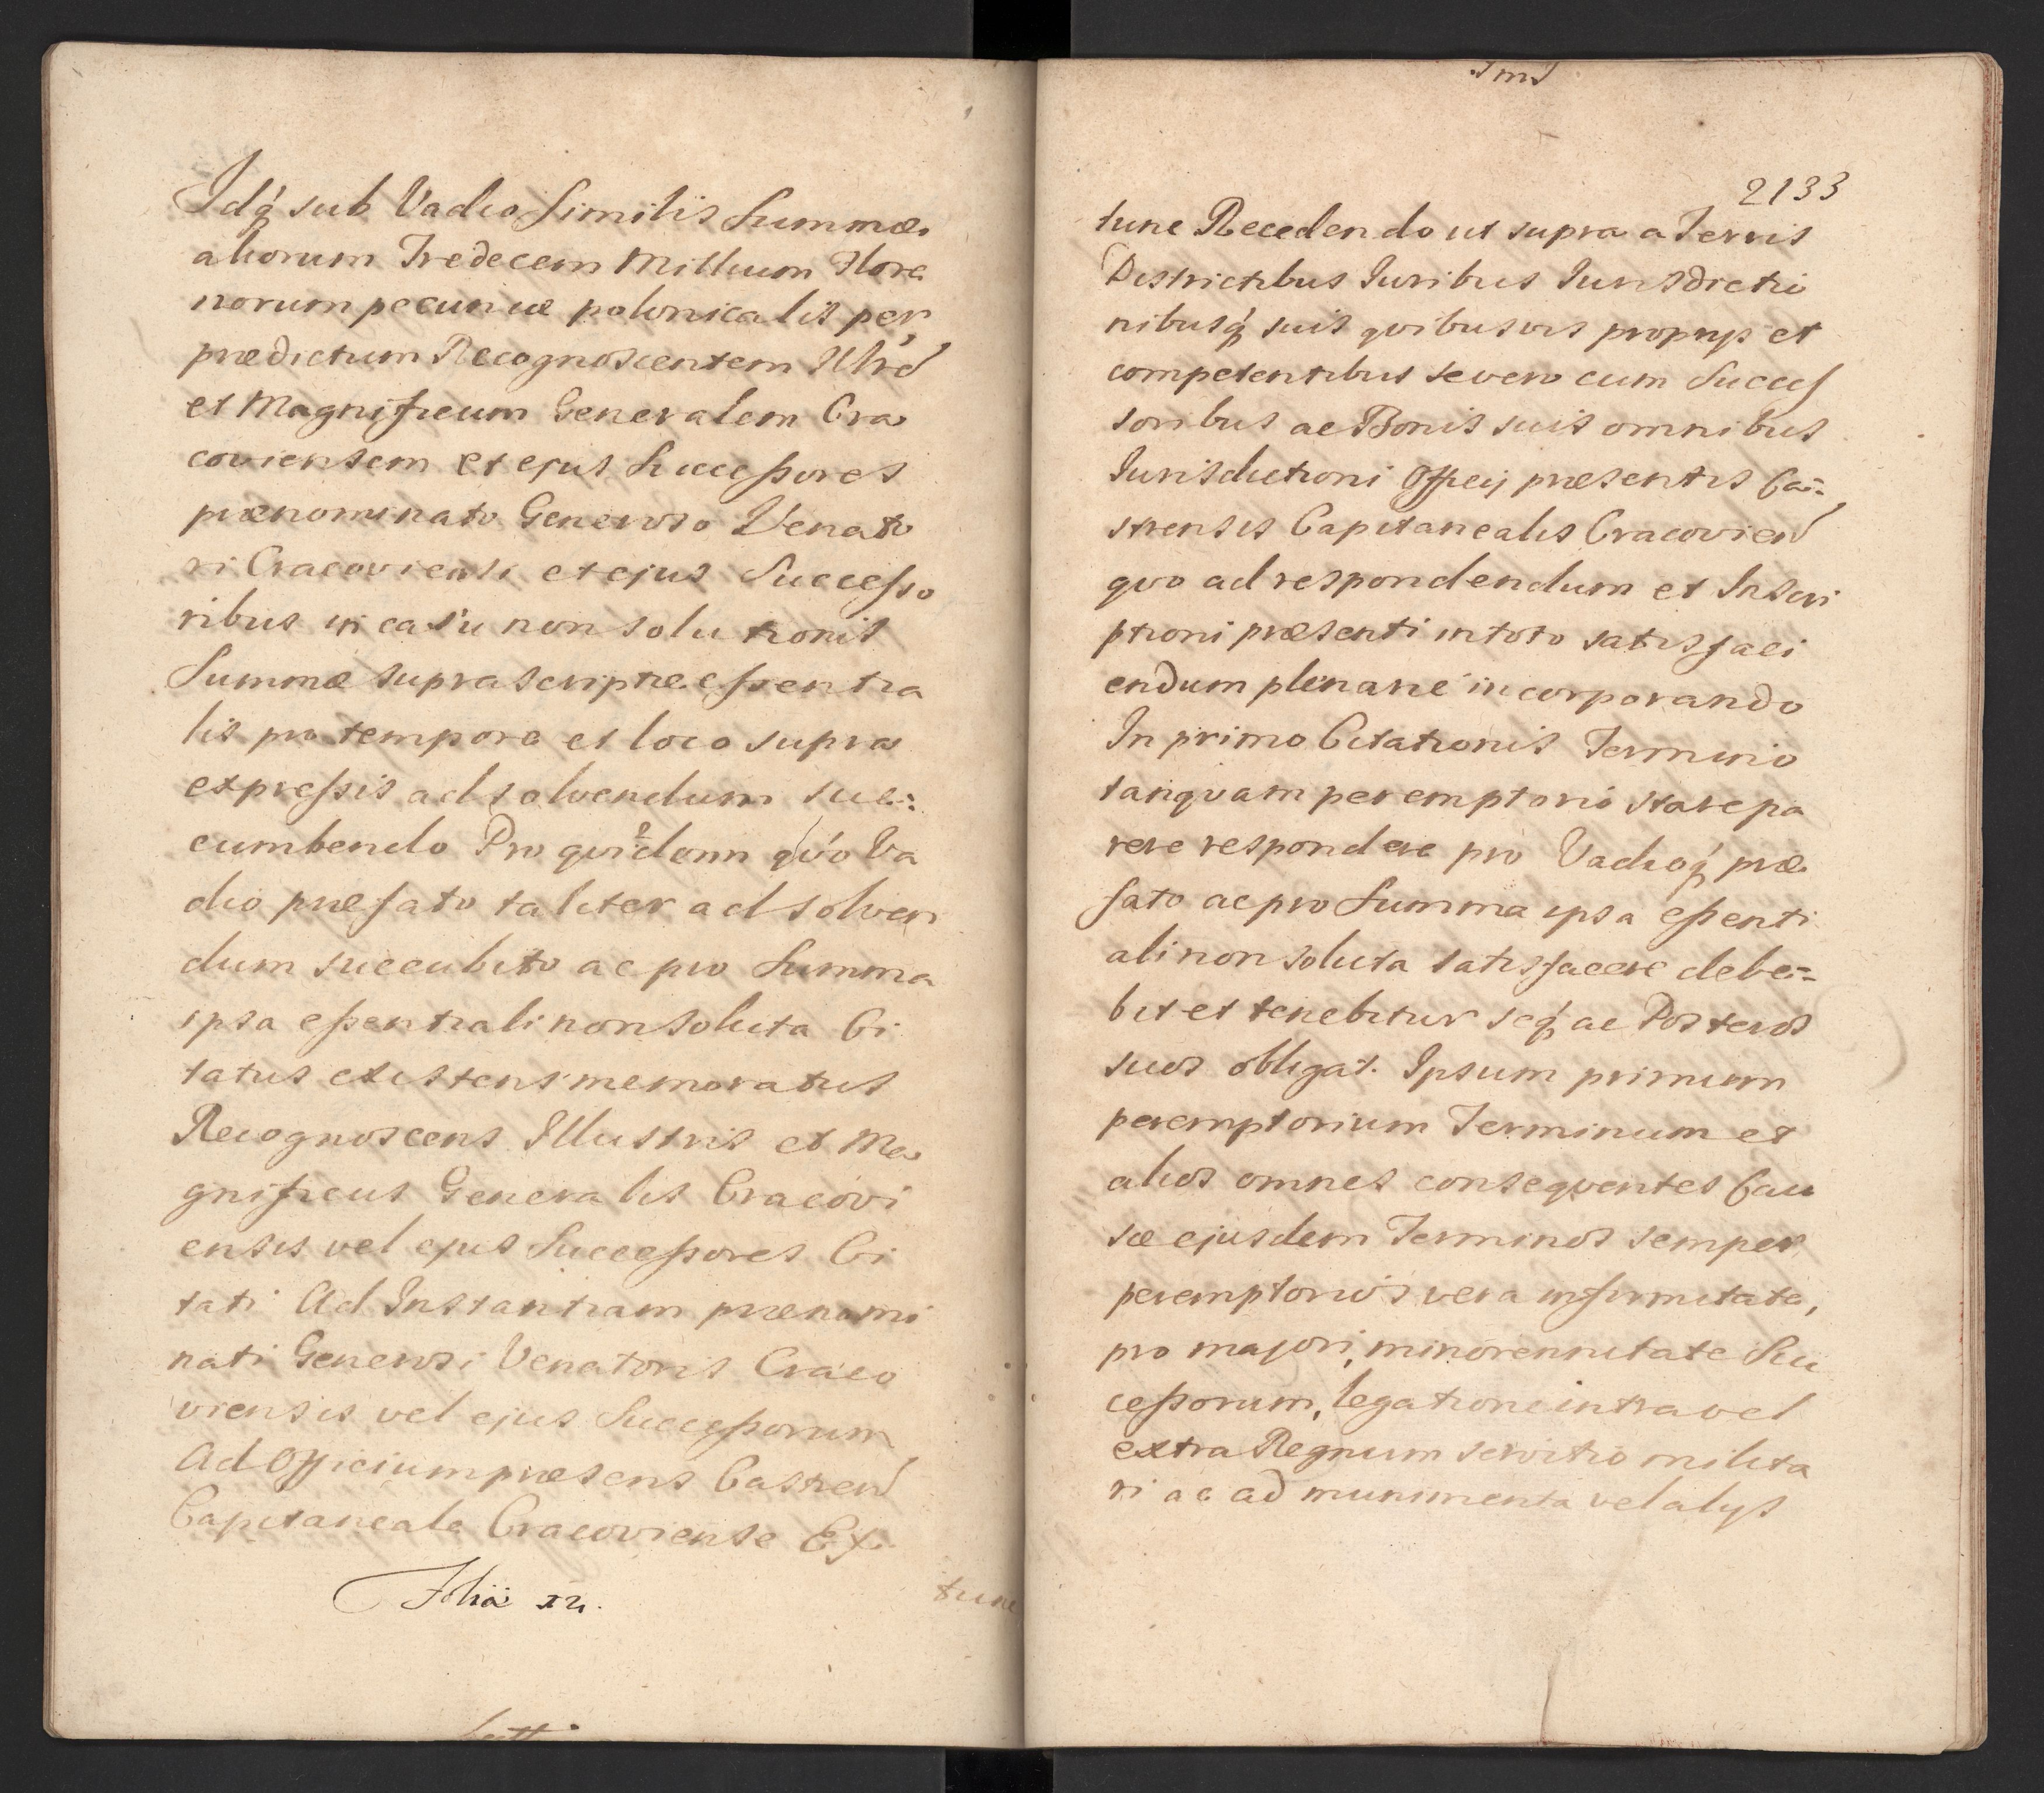 Idq́ sub Vadio Similis Summæ
aliorum Tredecem Millium Flore
norum pecuniæ polonicalis per
prædictum Recognoscentem Illrẽ
et Magnificum Generalem Cra
coviensem et ejus Successores
prænominato Generoso Venato
ri Cracoviensi et ejus Successo
ribus in casu non solutionis
Summæ supra scriptæ essentia
lis pro tempore et loco supra
expressis ad solvendum suc:
cumbendo Pro quidem quo Va
dio præfato taliter ad solven
dum succubito ac pro Summa
ipsa essentiali non soluta Ci
tatus existens memoratus
Recognoscens Illustris et Ma
gnificus Generalis Cracovi
ensis vel ejus Successores Ci
tati Ad Instantiam prænomi
nati Generosi Venatoris Craco
viensis vel ejus Successorum
Ad Officium præsens Castren
Capitaneale Cracoviense Ex
tunc
2133
tunc Recedendo ut supra a Terris
Districtibus Juribus Jurisdictio
nibusq́ suis quibusvis proprijs et
competentibus se vero cum Succes
soribus ac Bonis suis omnibus
Jurisdictioni Officij præsentis Ca=
strensis Capitanealis Cracovien
quo ad respondendum et Inscri
ptioni præsenti in toto satisfaci
endum plenarie incorporando
In primo Citationis Termino
tanquam peremptorio stare pa
rere respondere pro Vadioq́ præ
fato ac pro Summa ipsa essenti
ali non soluta satisfacere debe=
bit et tenebitur seq́ ac Posteros
suos obligat. Ipsum primum
peremptorium Terminum et
alios omnes consequentes Cau
sæ ejusdem Terminos semper
peremptorios vera infirmitate,
pro majori, minorennitate Suc
cessorum, legatione intra vel
extra Regnum servitio milita
ri ac ad munimenta vel alijs